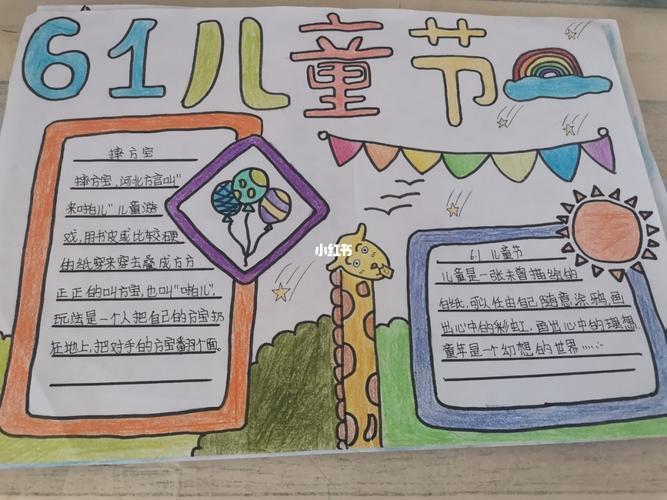 61儿童节
摔方宝
摔方宝,河北方言叫"
来啪儿"儿童游
戏,用书皮或比较硬
的纸穿来穿去叠成方方
正正的叫方宝,也叫"啪儿",
玩法是一个人把自己的方宝扔
在地上,把对手的方宝翻个面。
小红书
6.1 儿童节
儿童是一张未曾描绘的
白纸,可以任由自己,随意涂鸦,画
出心中的彩虹,画出心中的理想.
童年是个幻想的世界……